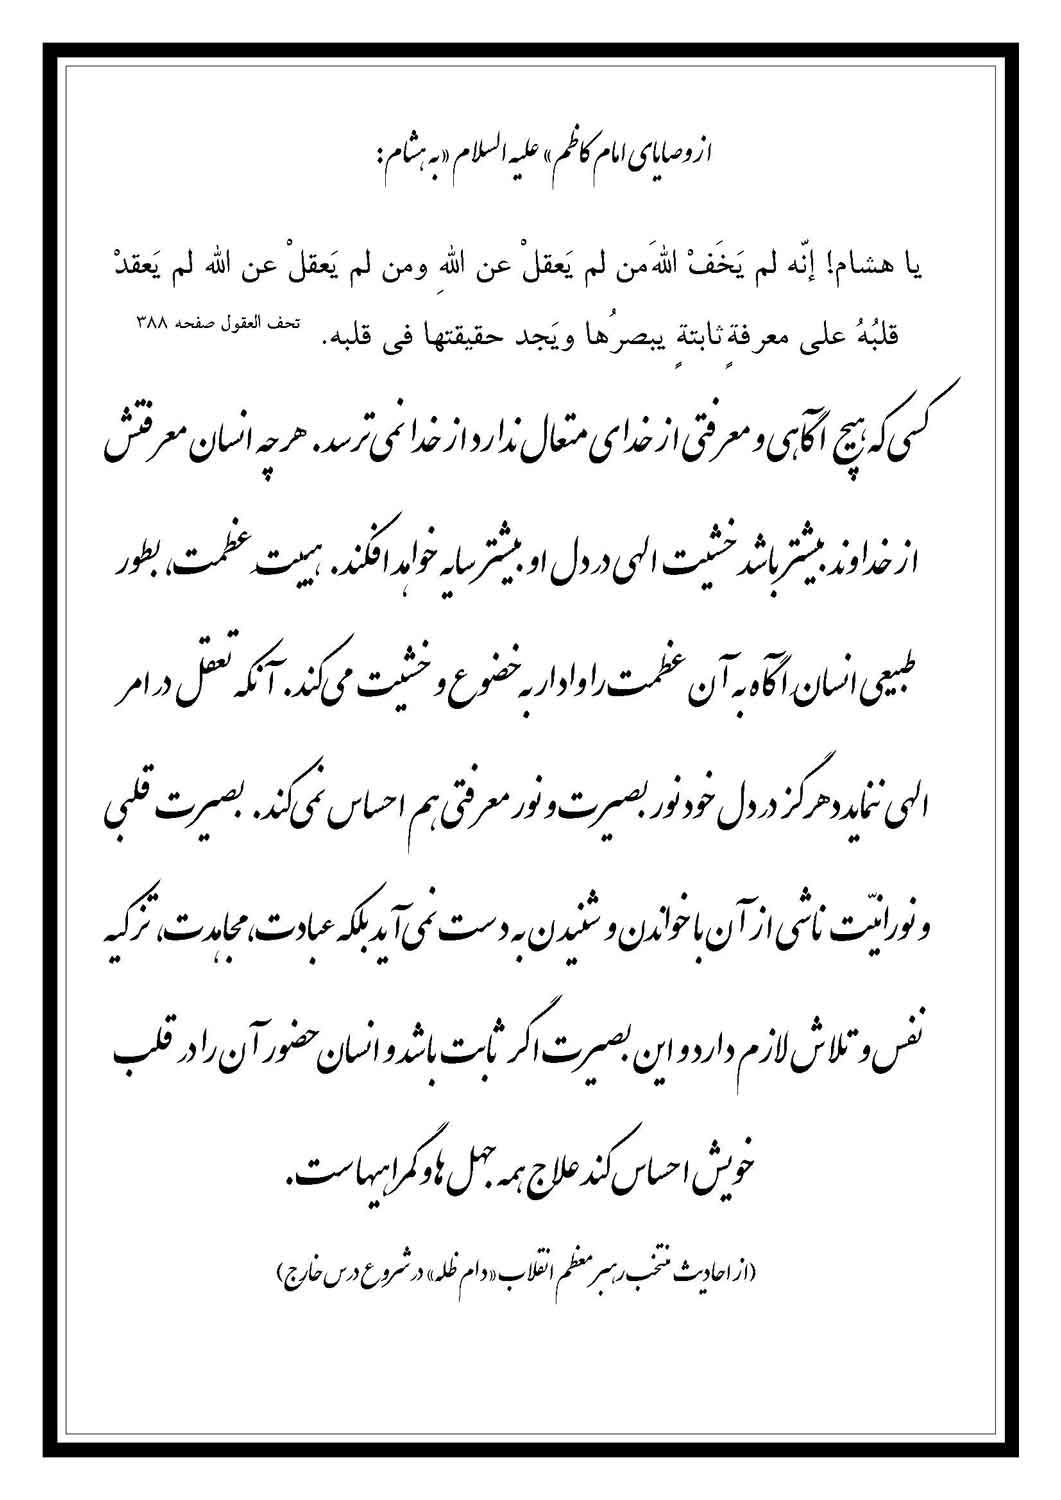 از وصایای امام کاظم» علیه السلام «به هشام:
یا هشام! إنّه لم یَخَفْ اللهَ من لم یَعقلْ عن اللهِ ومن لم یَعقلْ عن الله لم یَعقدْ
قلبُهُ علی معرفةٍ ثابتةٍ یبصرُها ویَجد حقیقتها فی قلبه. تحف العقول صفحه ۳۸۸
کسی که هیچ آگاهی و معرفتی از خدای متعال ندارد از خدا نمی ترسد. هر چه انسان معرفتش
از خداوند بیشتر باشد خشیت الهی در دل او بیشتر سایه خواهد افکند. هیبت عظمت، بطور
طبیعی انسان آگاه به آن عظمت را وادار به خضوع و خشیت می کند. آنکه تعقل در امر
الهی ننماید هرگز در دل خود نور بصیرت و نور معرفتی هم احساس نمی کند. بصیرت قلبی
و نورانیّت ناشی از آن با خواندن و شنیدن به دست نمی آید بلکه عبادت، مجاهدت، تزکیه
نفس و تلاش لازم دارد و این بصیرت اگر ثابت باشد و انسان حضور آن را در قلب
خویش احساس کند علاج همه جهل ها و گمراهیهاست.
(از احادیث منتخب رهبر معظم انقلاب «دام ظله» در شروع درس خارج)